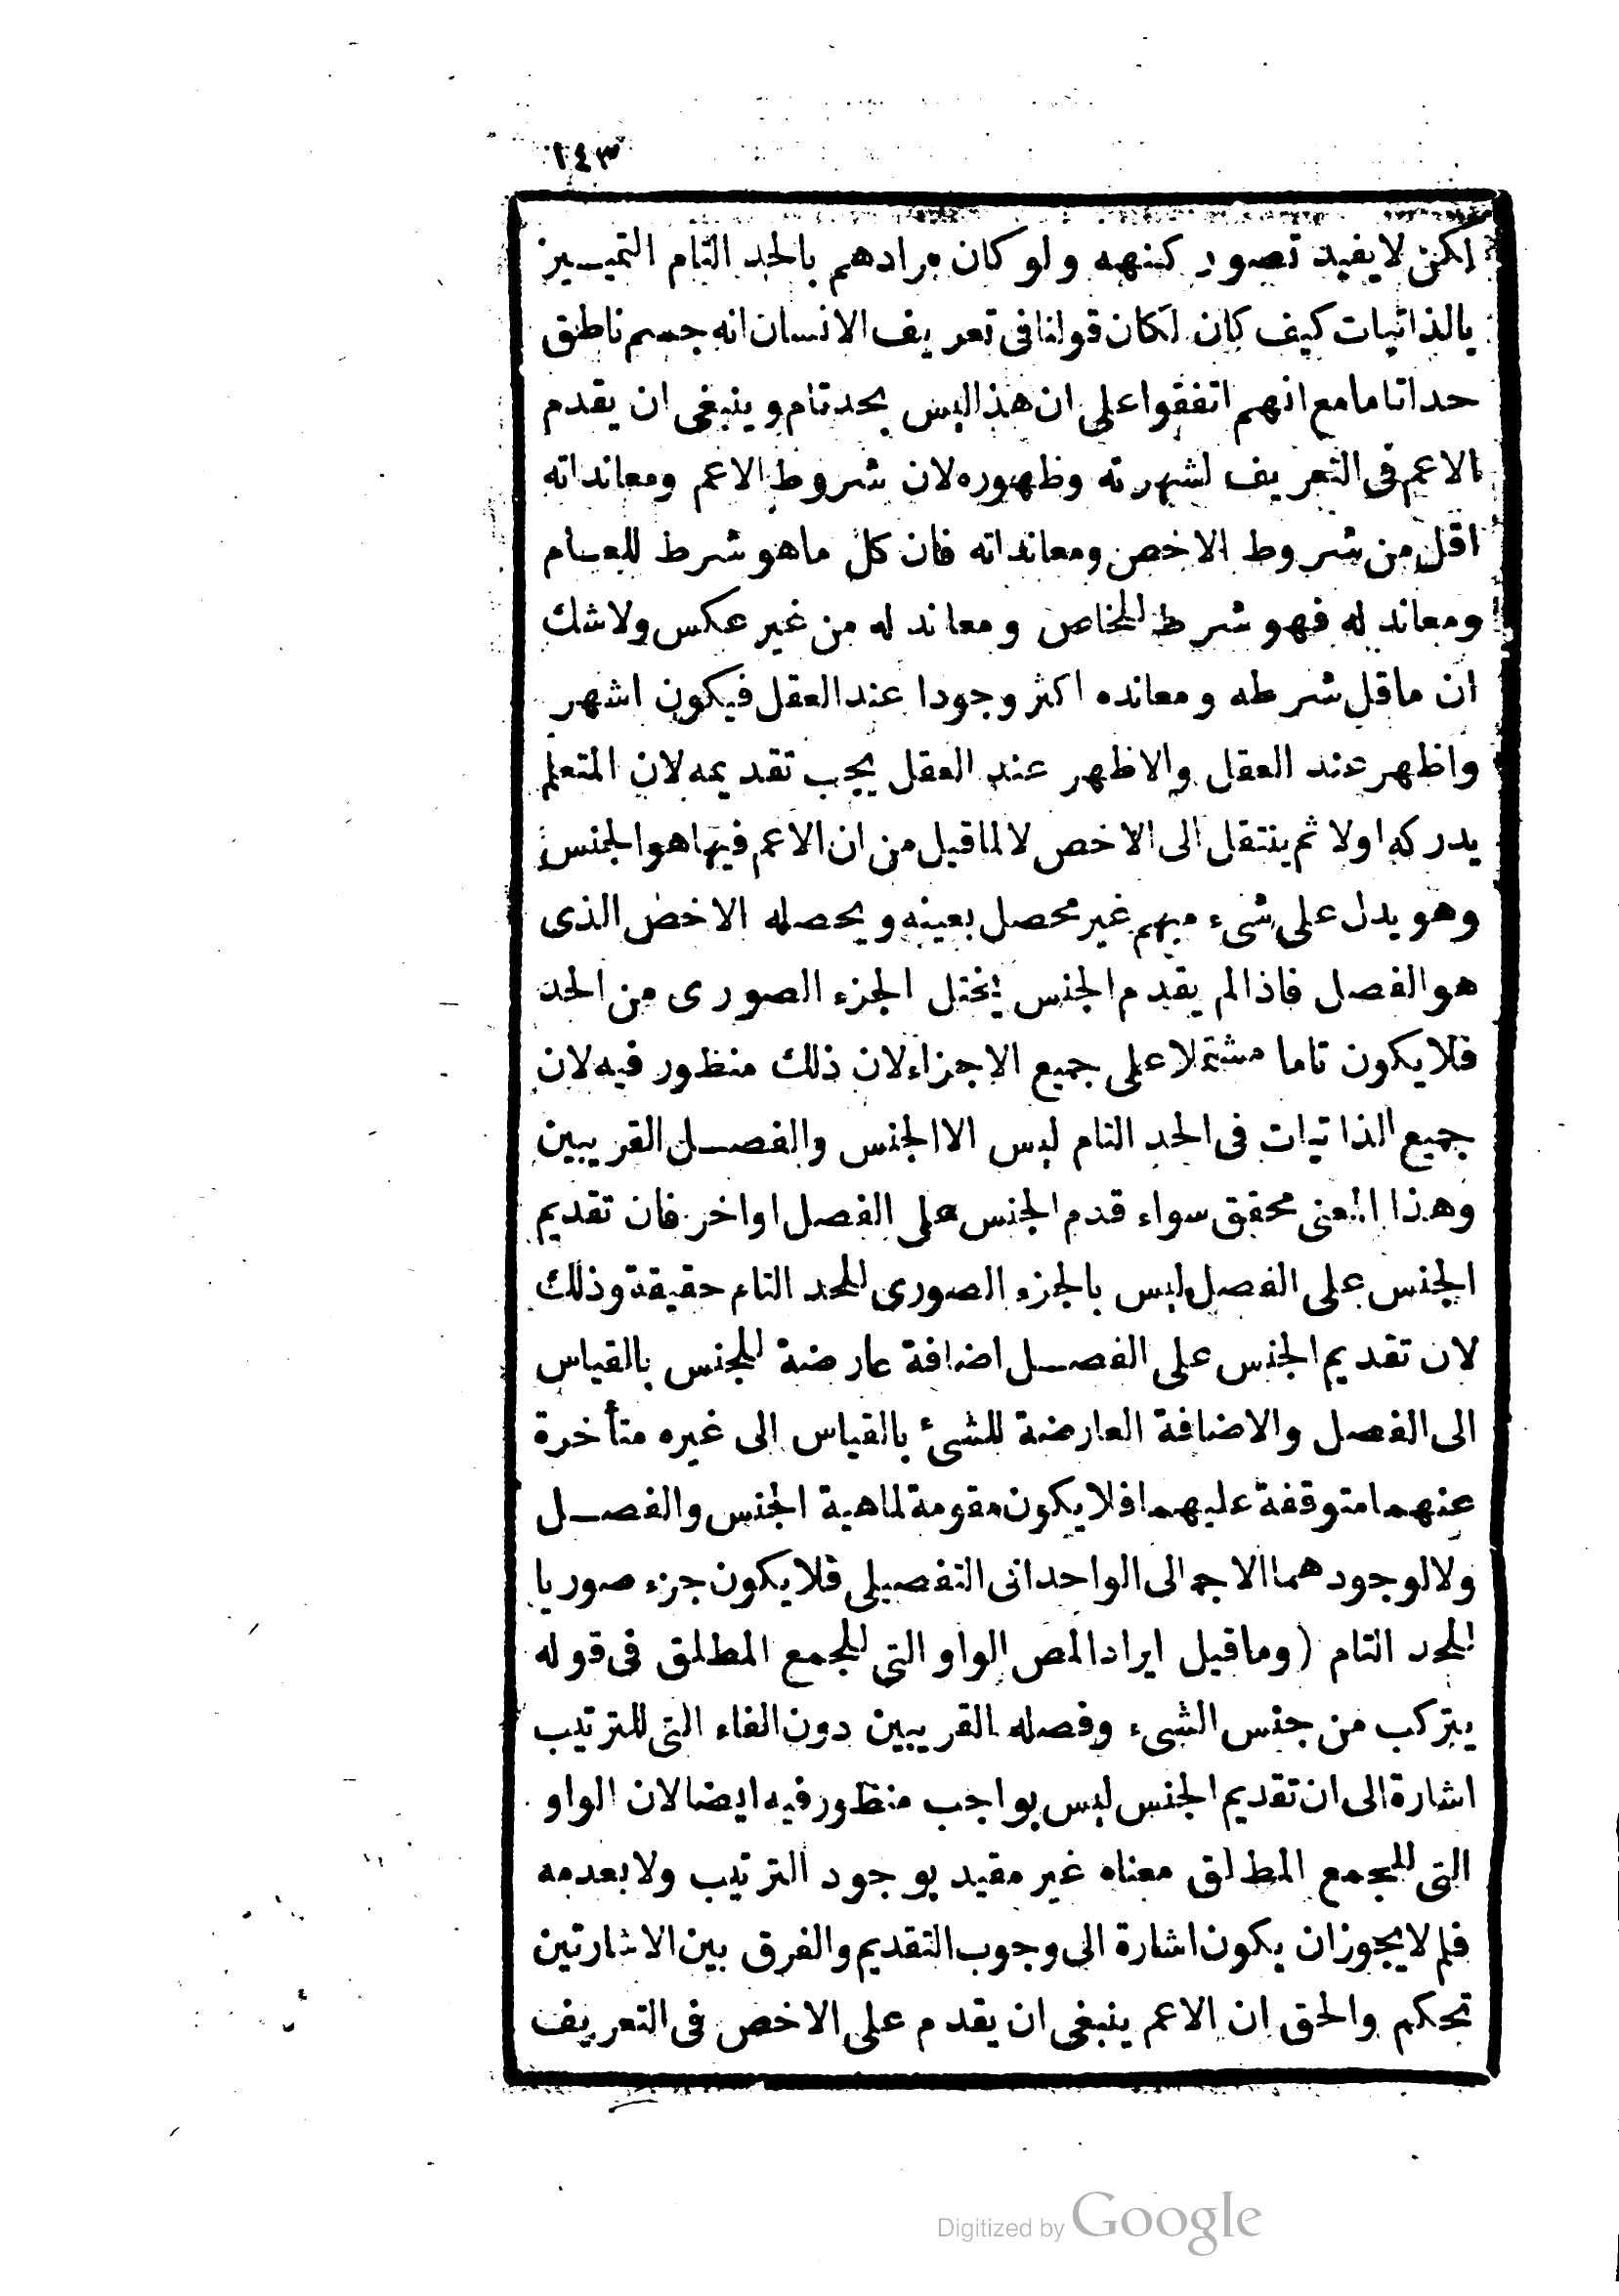 ١٤٣
لكن لا يفيد تصور كنهه ولو كان مرادهم بالحد التام التمييز
بالذاتيات كيف كان لكان قولنا فى تعريف الانسان انه جسم ناطق
حدا تاما مع انهم اتفقوا على ان هذا ليس بحد تام وينبغى ان يقدم
الاعم فى التعريف لشهرته وظهوره لان شروط الاعم ومعانداته
اقل من شروط الاخص ومعانداته فان كل ما هو شرط للعام
ومعاند له فهو شرط للخاص ومعاند له من غير عكس ولا شك
ان ما قل شرطه ومعانده اكثر وجودا عند العقل فيكون اشهر
واظهر عند العقل والاظهر عند العقل يجب تقديمه لان المتعلم
يدركه اولا ثم ينتقل الى الاخص لا لما قيل من ان الاعم فيها هو الجنس
وهو يدل على شىء مبهم غير محصل بعينه ويحصله الاخص الذى
هو الفصل فاذا لم يقدم الجنس يختل الجزء الصورى من الحد
فلا يكون تاما مشتملا على جميع الاجزاء لان ذلك منظور فيه لان
جميع الذاتيات فى الحد التام ليس الا الجنس والفصل القريبين
وهذا المعنى محقق سواء قدم الجنس على الفصل او اخر فان تقديم
الجنس على الفصل ليس بالجزء الصورى للحد التام حقيقة وذلك
لان تقديم الجنس على الفصل اضافة عارضة للجنس بالقياس
الى الفصل والاضافة العارضة للشئ بالقياس الى غيره متأخرة
عنهما متوقفة عليهما فلا يكون مقومة لماهية الجنس والفصل
ولا لوجودهما الاجمالى الواحدانى التفصيلى فلا يكون جزء صوريا
للحد التام (وما قيل ايراد المص الواو التى للجمع المطلق فى قوله
يتركب من جنس الشىء وفصله القريبين دون الفاء التى للترتيب
اشارة الى ان تقديم الجنس ليس بواجب منظور فيه ايضا لان الواو
التى للجمع المطلق معناه غير مقيد بوجود الترتيب ولا بعدمه
فلم لا يجوز ان يكون اشارة الى وجوب التقديم والفرق بين الاشارتين
تحكم والحق ان الاعم ينبغى ان يقدم على الاخص فى التعريف
Digitized by Google